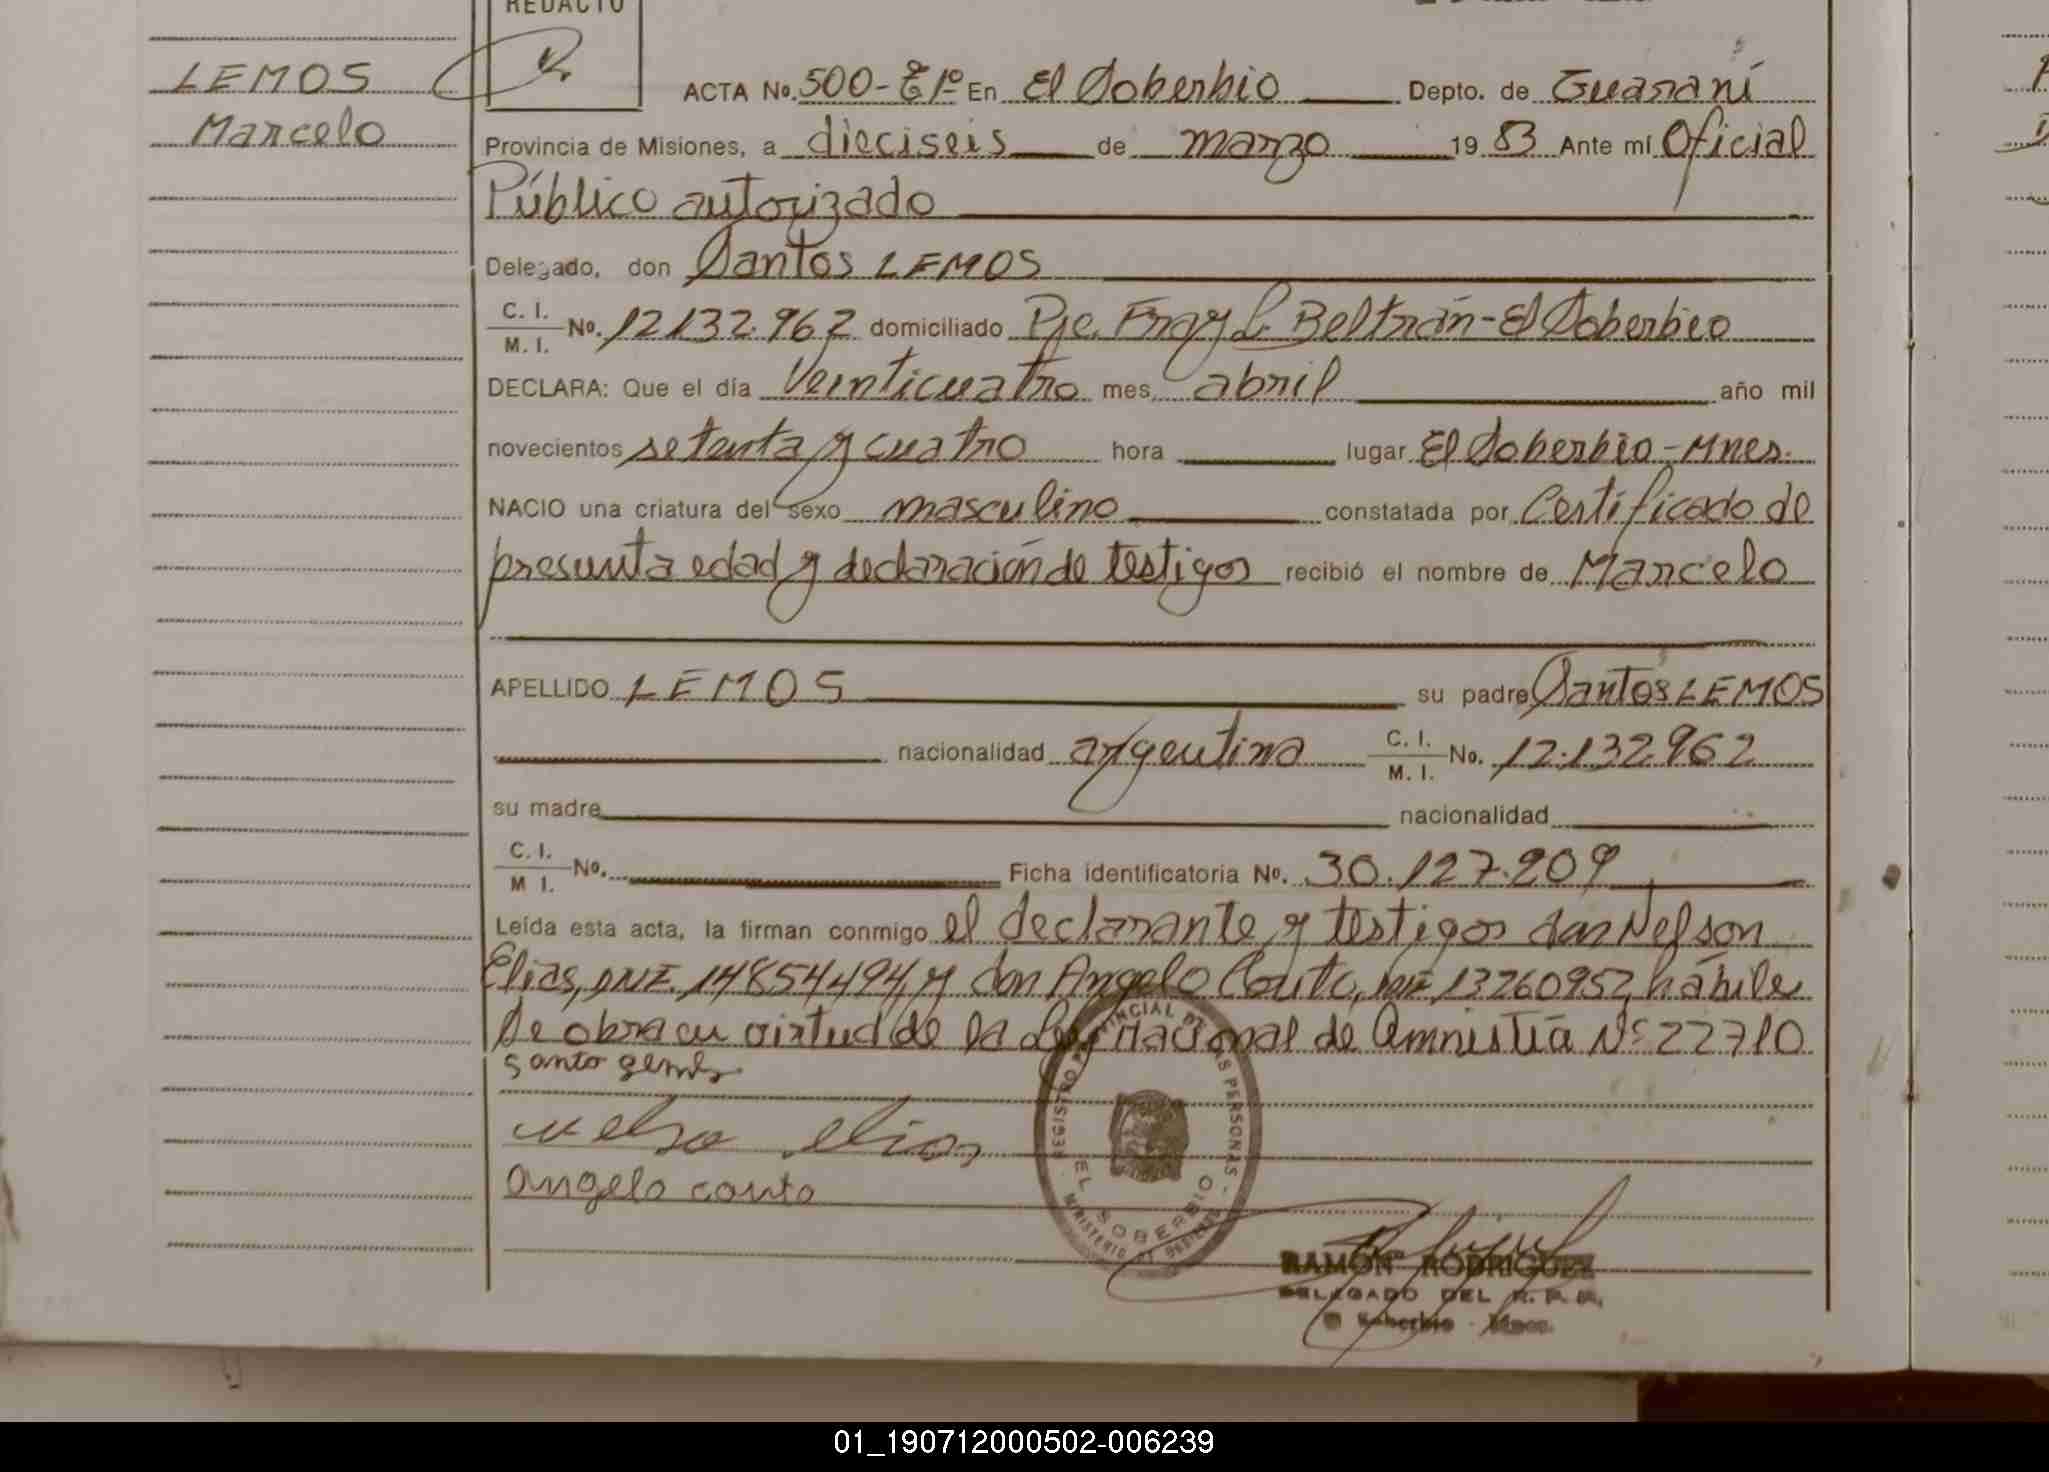 REDACTO
LEMOS
Marcelo
ACTA No. 500-Tº1º En El Soberbio Depto. de Guaraní
Provincia de Misiones, a dieciseis de marzo 1983 Ante mí Oficial
Público autorizado
Delegado, don Santos LEMOS
C. I.
M. I. No. 12.132.962 domiciliado Pje. Fray L. Beltrán - El Soberbio
DECLARA: Que el día Veinticuatro mes, abril año mil
novecientos setenta y cuatro hora lugar El Soberbio - Mnes.
NACIO una criatura del sexo masculino constatada por Certificado de
presunta edad y declaración de testigos recibió el nombre de Marcelo
APELLIDO LEMOS su padre Santos LEMOS
nacionalidad argentina C. I. M. I. No. 12.132.962
su madre nacionalidad
C. I.
M I. No. Ficha identificatoria No. 30.127.209
Leída esta acta, la firman conmigo el declarante y testigos don Nelson
Elias, DNI. 14854494, y don Angelo Couto, DNI 13260952, hábiles
Se obra en virtud de la Ley nacional de Amnistía Nº 22710
santo
nelso elias
angelo couto
REGISTRO PROVINCIAL DE LAS PERSONAS
EL SOBERBIO
MINISTERIO DE GOBIERNO
RAMÓN RODRIGUEZ
DELEGADO DEL R. P. P.
El Soberbio - Mnes.
01_190712000502-006239